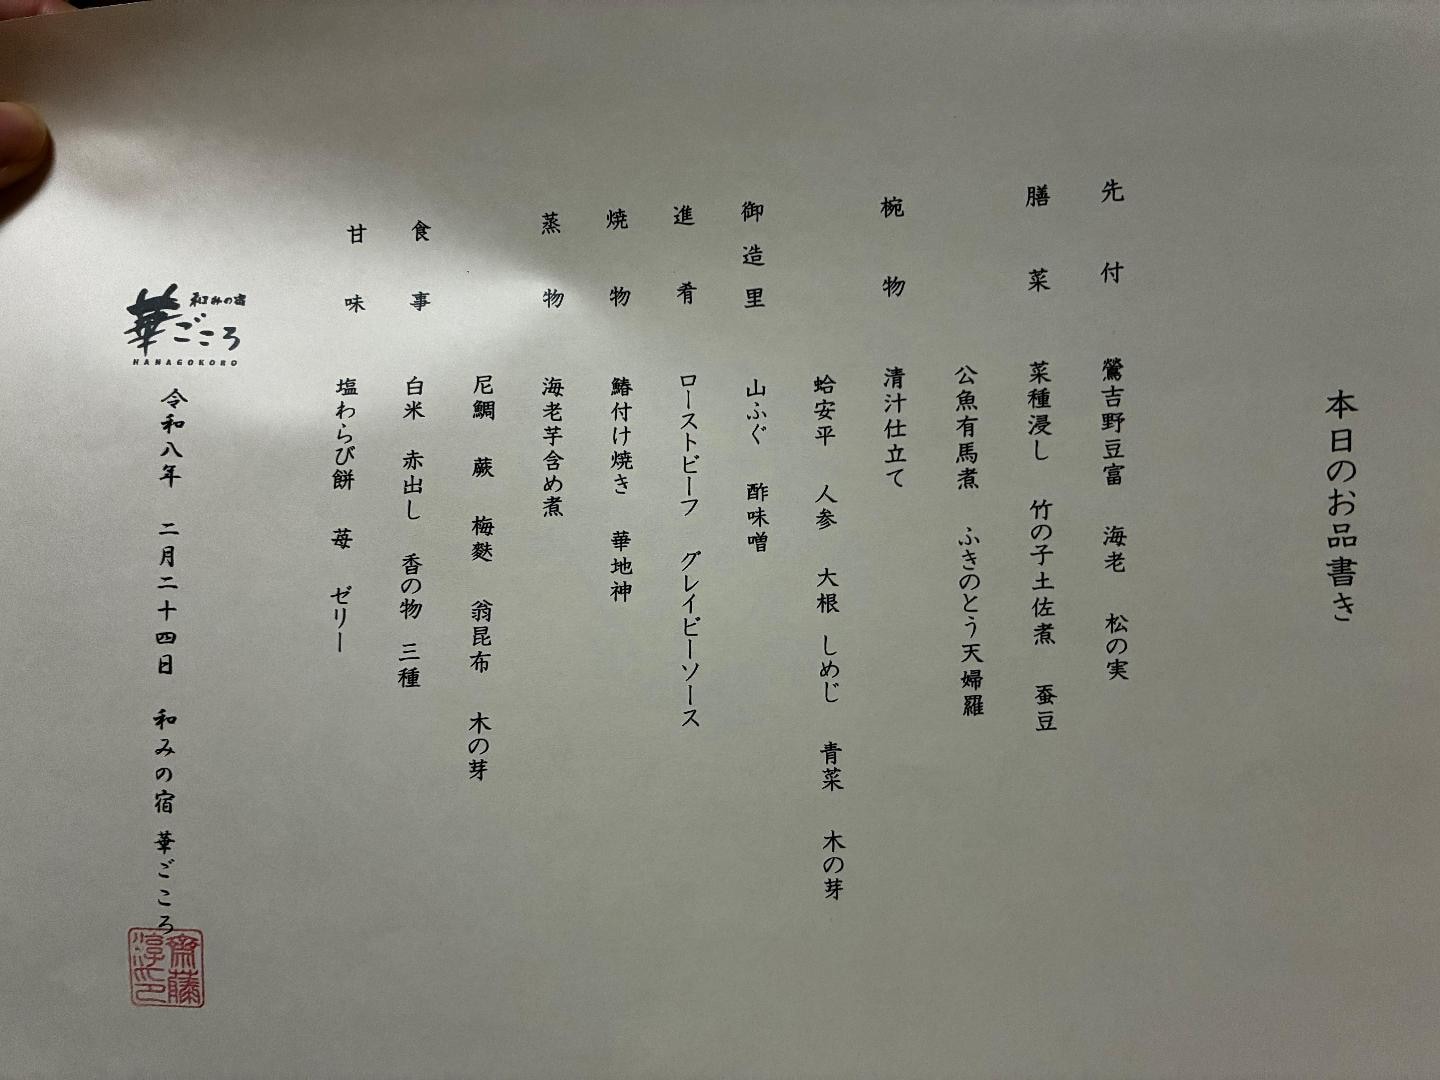 本日のお品書き
先付 鶯吉野豆富 海老 松の実
膳菜 菜種浸し 竹の子土佐煮 蚕豆
公魚有馬煮 ふきのとう天婦羅
椀物 清汁仕立て
蛤安平 人参 大根 しめじ 青菜 木の芽
御造里 山ふぐ 酢味噌
進肴 ローストビーフ グレイビーソース
焼物 鰆付け焼き 華地神
蒸物 海老芋含め煮
尼鯛 蕨 梅麩 翁昆布 木の芽
食事 白米 赤出し 香の物 三種
甘味 塩わらび餅 苺 ゼリー
和みの宿
華ごころ
HANAGOKORO
令和八年 二月二十四日 和みの宿 華ごころ
齋藤
淳印